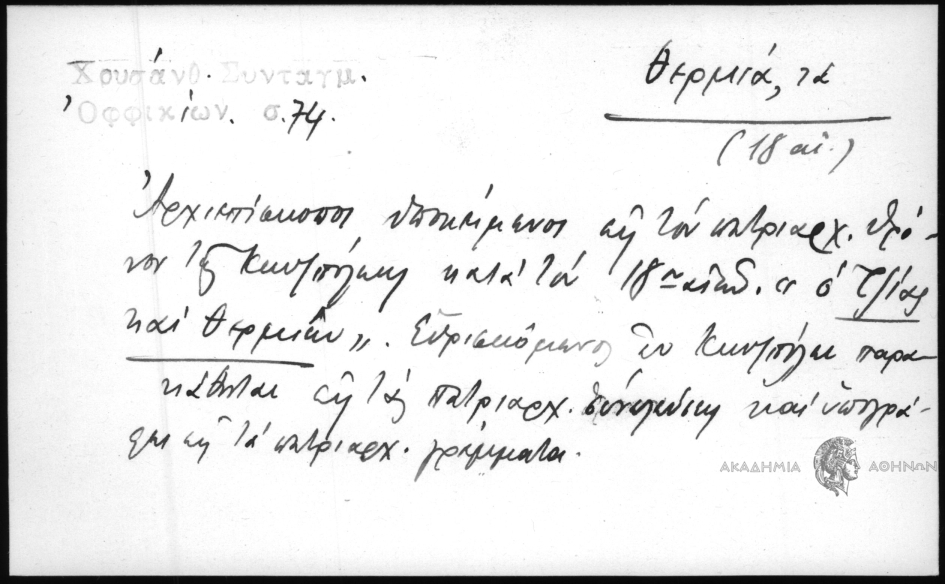 Χρυσάνθ. Συνταγμ.
Ὀφφικίων. σ.74.
Θερμιά, τα
(18 αἰ.)
Ἀρχιεπίσκοπος ὑποκείμενος εἰς τὸν πατριαρχ. θρό-
νον τῆς Κωνσ/πόλεως κατὰ τὸν 18ον αἰῶν. " ὁ Τζίας
καὶ Θερμιῶν„. Εὑρισκόμενος ἐν Κωνσ/πόλει παρα-
κάθηται εἰς τὰς πατριαρχ. συνελεύσεις καὶ ὑπογρά-
φει εἰς τὰ πατριαρχ. γράμματα.
ΑΚΑΔΗΜΙΑ ΑΘΗΝΩΝ